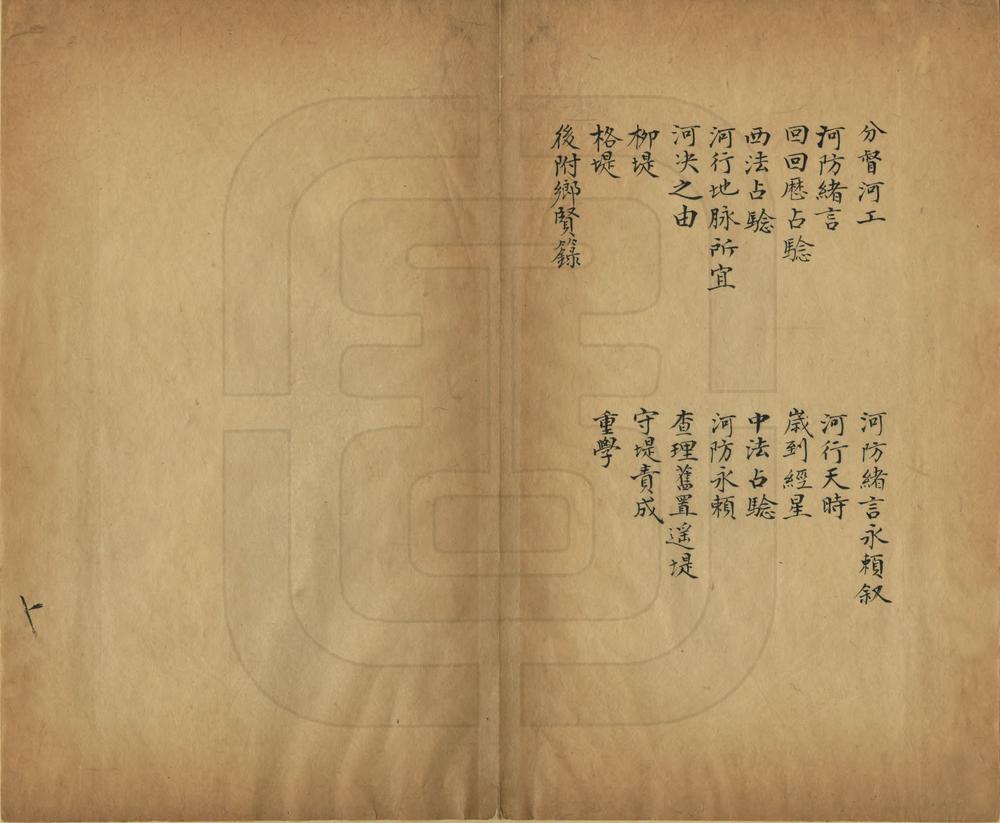 分督河工 河防緒言永賴叙
河防緒言 河行天時
回回歷占騐 歲到經星
西法占騐 中法占騐
河行地脉所宜 河防永賴
河决之由 查理舊置遥堤
柳堤 守堤責成
格堤 重學
後附鄉賢錄
卜